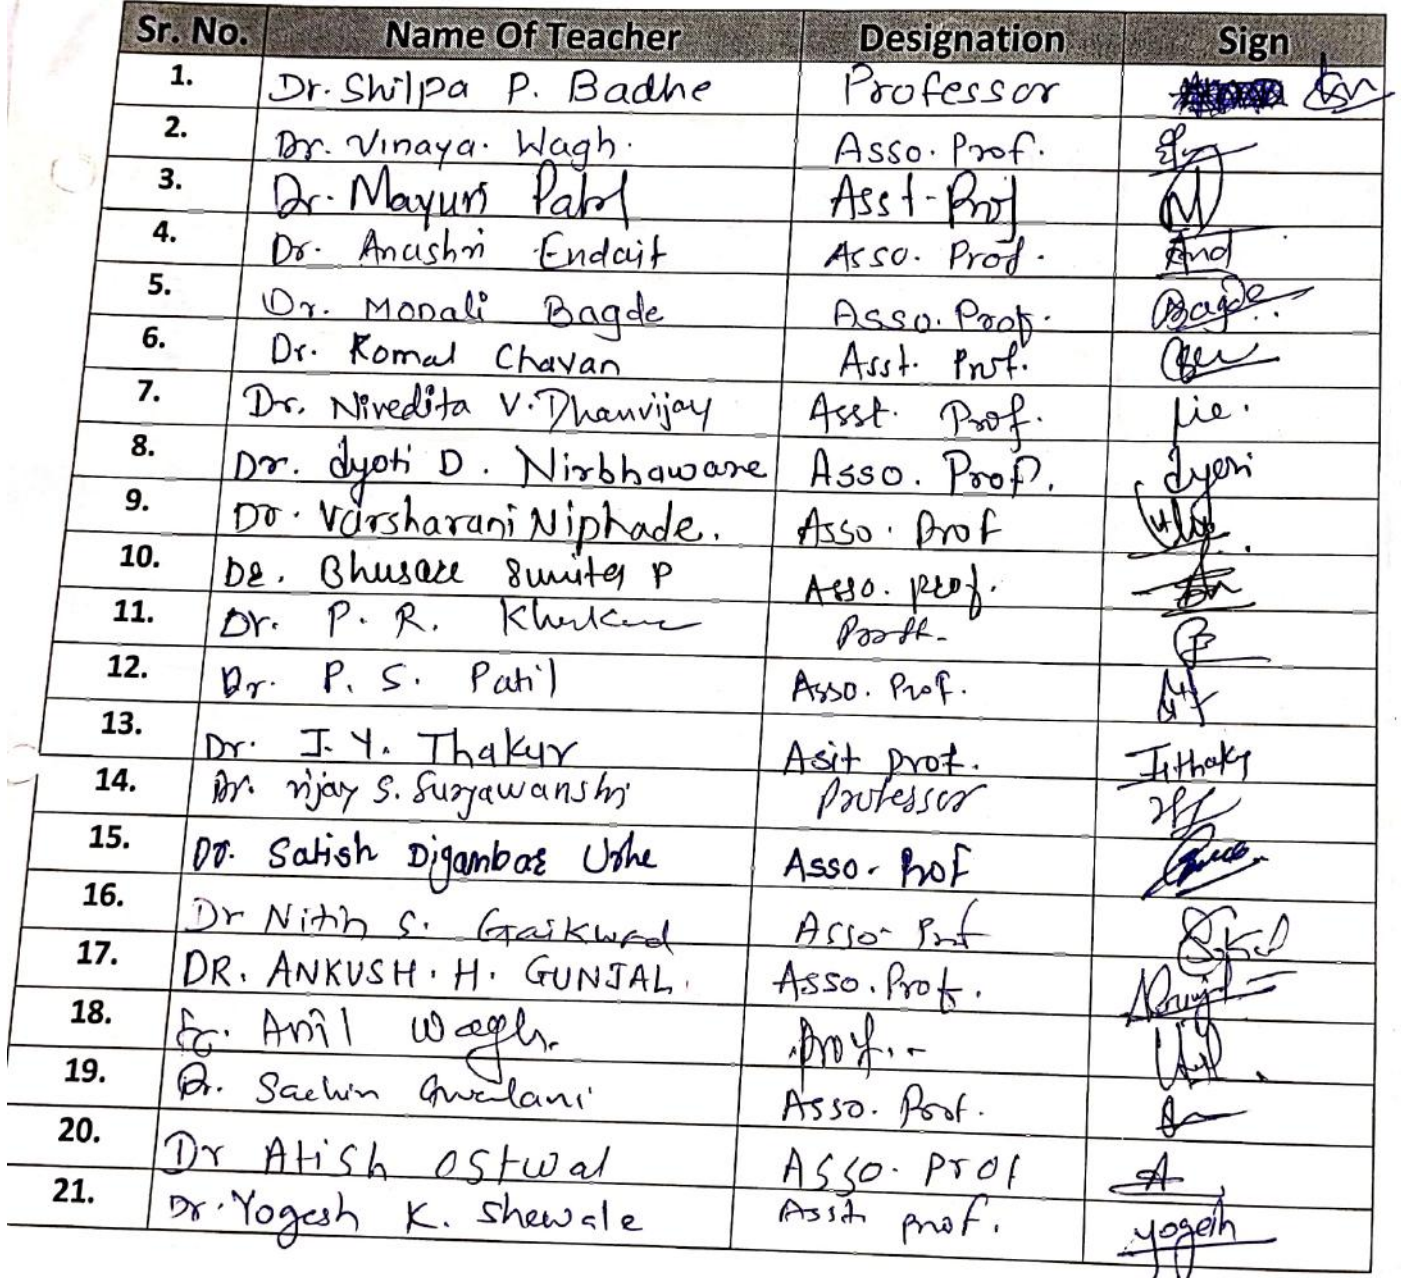 Sr. No. Name Of Teacher Designation Sign
1. Dr. Shilpa P. Badhe Professor
2. Dr. Vinaya. Wagh. Asso. Prof.
3. Dr. Mayuri Patil Asst-Prof
4. Dr. Anushri Endait Asso. Prof.
5. Dr. Monali Bagde Asso. Prof. Bagde
6. Dr. Komal Chavan Asst. Prof.
7. Dr. Nivedita V. Dhanvijay Asst. Prof.
8. Dr. Jyoti D. Nirbhawane Asso. Prof. Jyoti
9. Dr. Varsharani Niphade. Asso. Prof
10. Dr. Bhusare Sunita P Asso. Prof.
11. Dr. P. R.
12. Dr. P. S. Patil Asso. Prof.
13. Dr. J. Y. Thakur Asst Prof. JYThakur
14. Dr. Vijay S. Suryawanshi Professor
15. Dr. Satish Digambar Urhe Asso. Prof
16. Dr Nitin S. Gaikwad Asso- Prof
17. DR. ANKUSH. H. GUNJAL. Asso. Prof.
18. Anil Wagh. Prof.
19. Dr. Sachin Gwalani Asso. Prof.
20. Dr Atish Ostwal Asso. Prof A
21. Dr. Yogesh K. Shewale Asst. prof. yogesh